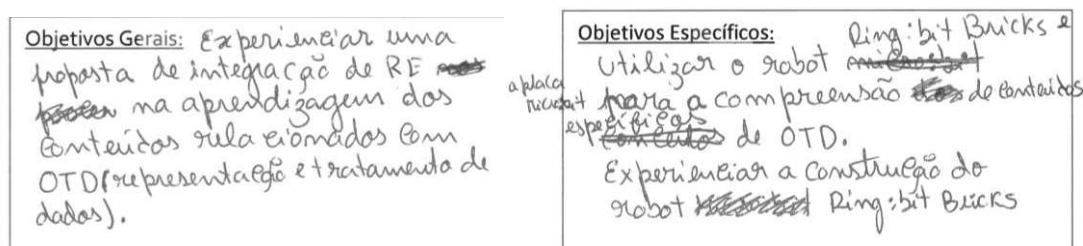 Objetivos Gerais: Experienciar uma
proposta de integração de RE
na aprendizagem dos
conteúdos relacionados com
OTD (representação e tratamento de
dados).
Objetivos Específicos: Ring:bit Bricks e
a placa
micro:bit
Utilizar o robot
para a compreensão de conteúdos
específicos
de OTD.
Experienciar a construção do
robot Ring:bit Bricks